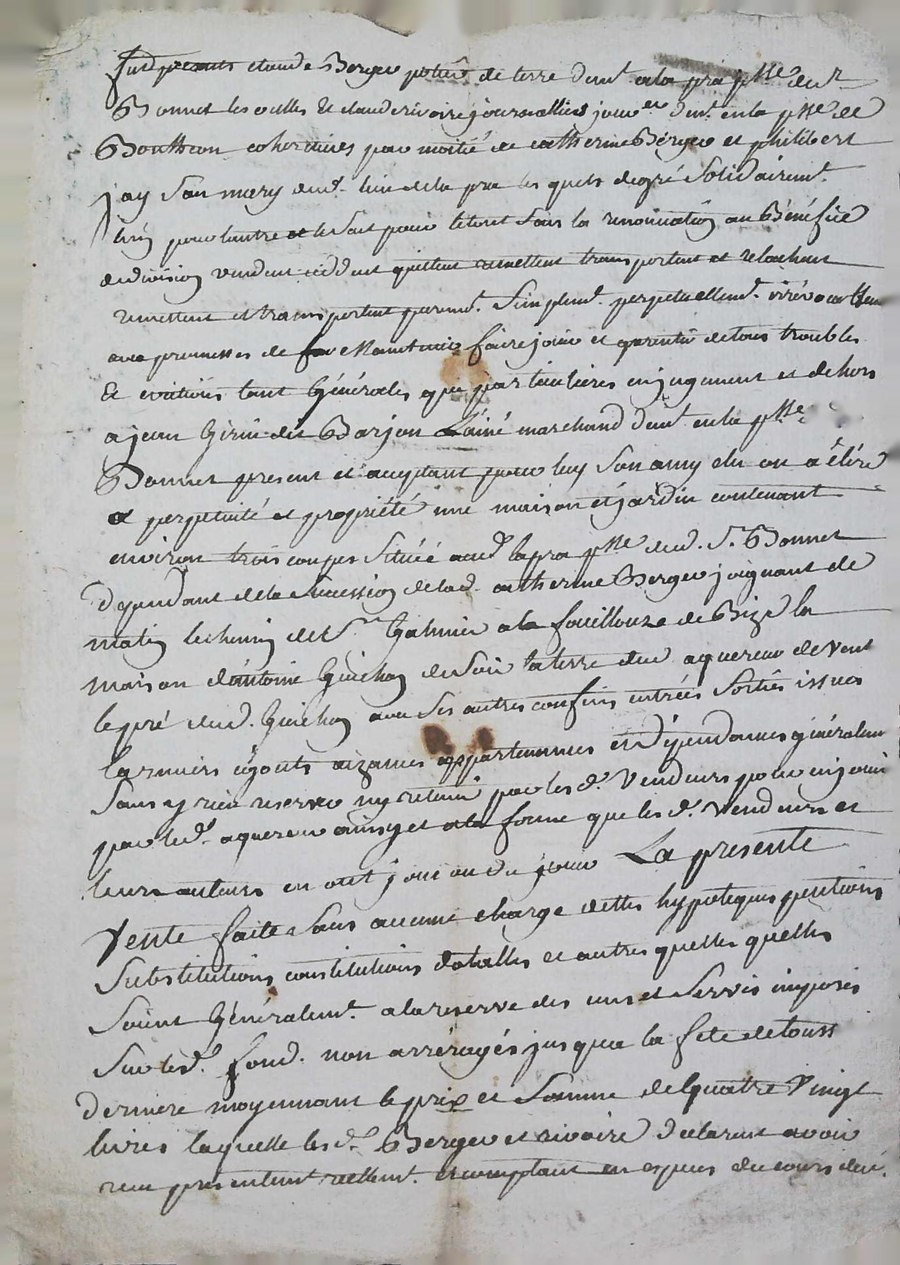 furent présents claude Berger potier de terre demt. a la pra psse. de St
Bonnet les oulles Et claude rivoire journallier demt. en la psse. de
Bouthéon cohéritiers par moitié de catherine Berger et philibert
jay son mary dud. lieu de la pra les quels de gré Solidairemt.
l'un pour lautre et le Seul pour le tout Sous la renonciation au Bénéfice
de division vendent ceddent quittent remettent transportent et relachent
remettent et transportent puremt. Simplemt. perpetuellemt. irrévocablemt
avec promesses de maintenir faire jouir et garentir de tous troubles
Et evictions tant Générales que particulières en jugement et dehors
a jean Girin dit Barjon L'ainé marchand demt. en la psse.
Bonnet present et aceptant pour luy Son amy elu ou a élire
a perpetuité et propriété une maison et jardin contenant
environ trois coupes Située aud. la pra psse. dud. St. Bonnet
dependant de la Succession de lad. catherine Berger joignant de
matin le chemin de St. Galmier a la fouillouze de Bize la
maison d'antoine Guichon de Soir la terre dud. aquereur de vent
le pré dud. Guichon avec Ses autres confins entrées Sorties issues
larmiers égouts aizances appartenances et dependances généralemt
Sans y rien reserver ny retenir par les d. Vendeurs pour en jouir
par led. aquereur ainsy et a la forme que les d. vendeurs et
leurs auteurs en ont joui ou du jouir La presente
Vente faite Sans aucune charge dettes hypoteques pentions
Substitutions constitutions dotalles et autres quelles quelles
Soient Généralemt. a la reserve des cens et Servis imposés
Sur led. fond. non arréragés jusqua la fete de touss
derniere moyennant le prix et Somme de quatre Vingt
livres laquelle les d. Berger et rivoire declarent avoir
recu presentemt. réellemt. et comptant en espèces du cours